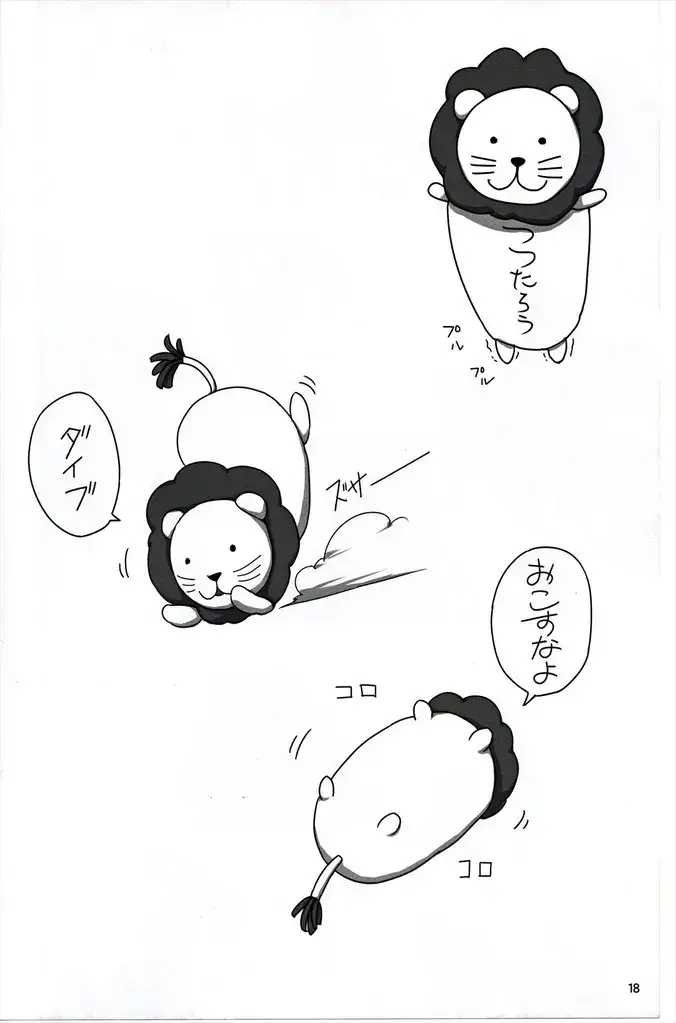 つつたろう
プル
プル
ダイブ
ズサー
おこすなよ
コロ
コロ
18